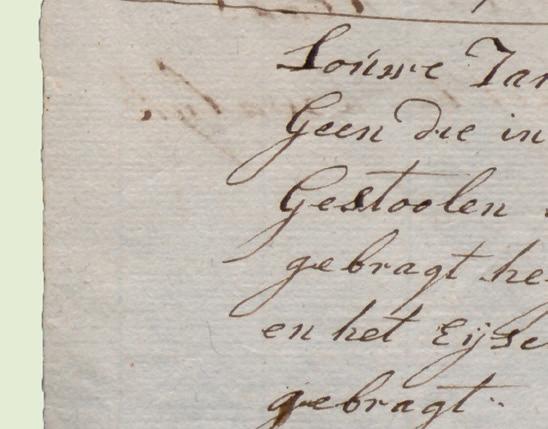 Louwe Jan
Geen die in
Gestoolen
gebragt he
en het Eijse
gebragt